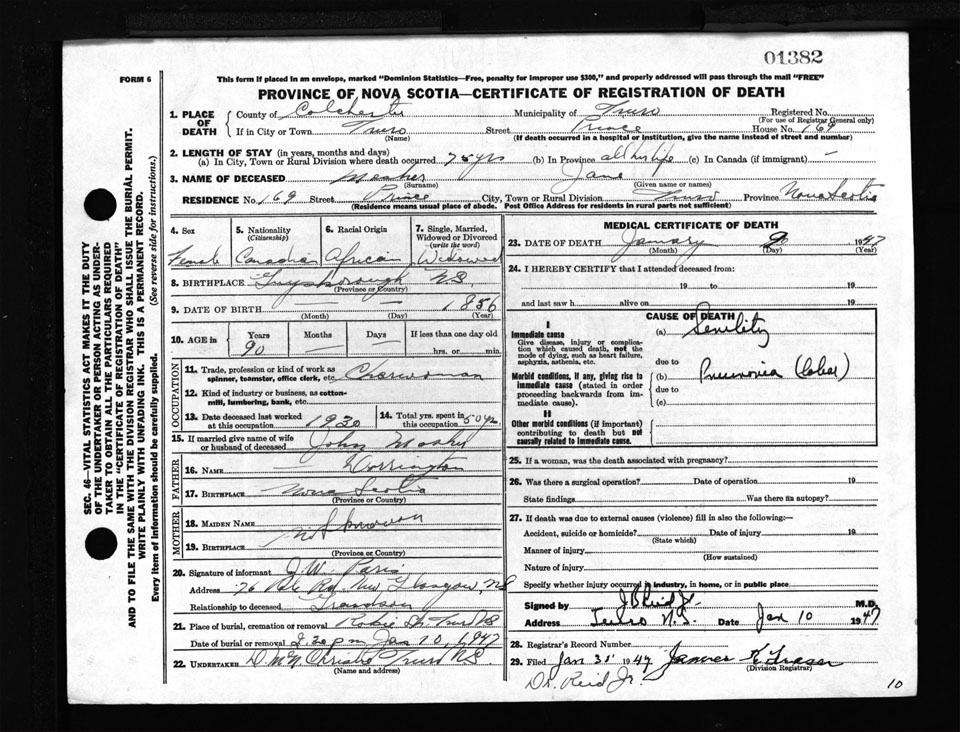 01382
FORM 6
This form if placed in an envelope, marked "Dominion Statistics—Free, penalty for improper use $300," and properly addressed will pass through the mail "FREE"
PROVINCE OF NOVA SCOTIA—CERTIFICATE OF REGISTRATION OF DEATH
1. PLACE OF DEATH { County of Colchester Municipality of Truro Registered No.
(For use of Registrar General only)
If in City or Town Truro Street Prince House No. 169
(Name) (If death occurred in a hospital or institution, give the name instead of street and number)
2. LENGTH OF STAY (in years, months and days)
(a) In City, Town or Rural Division where death occurred 75 yrs (b) In Province all her life (c) In Canada (if immigrant) —
3. NAME OF DECEASED Jane
(Surname) (Given name or names)
RESIDENCE No. 169 Street Prince City, Town or Rural Division Truro Province Nova Scotia
(Residence means usual place of abode. Post Office Address for residents in rural parts not sufficient)
4. Sex 5. Nationality (Citizenship) 6. Racial Origin 7. Single, Married, Widowed or Divorced (write the word)
Female Canadian African Widowed
8. BIRTHPLACE Guysborough N.S.
(Province or Country)
9. DATE OF BIRTH — 1856
(Month) (Day) (Year)
10. AGE in { Years Months Days If less than one day old
90 — — hrs. or min.
OCCUPATION
11. Trade, profession or kind of work as spinner, teamster, office clerk, etc. Charwoman
12. Kind of industry or business, as cotton-mill, lumbering, bank, etc.
13. Date deceased last worked at this occupation 1930 14. Total yrs. spent in this occupation 50 yrs
15. If married give name of wife or husband of deceased John
FATHER
16. NAME — Dorrington
17. BIRTHPLACE Nova Scotia
(Province or Country)
MOTHER
18. MAIDEN NAME
19. BIRTHPLACE
(Province or Country)
20. Signature of informant J. W. Paris
Address 76 Rd. New Glasgow, NS
Relationship to deceased Grandson
21. Place of burial, cremation or removal Robie St. Truro NS
Date of burial or removal 2.30 pm Jan 10, 1947
22. UNDERTAKER Christie Truro N.S.
(Name and address)
MEDICAL CERTIFICATE OF DEATH
23. DATE OF DEATH January 1947
(Month) (Day) (Year)
24. I HEREBY CERTIFY that I attended deceased from:
19 to 19
and last saw h alive on 19
CAUSE OF DEATH
I
Immediate cause (a) Senility
Give disease, injury or complication which caused death, not the mode of dying, such as heart failure, asphyxia, asthenia, etc.
due to
Morbid conditions, if any, giving rise to immediate cause (stated in order proceeding backwards from immediate cause). (b) Pneumonia (lobar)
due to
(c)
II
Other morbid conditions (if important) contributing to death but not causally related to immediate cause.
25. If a woman, was the death associated with pregnancy?
26. Was there a surgical operation? Date of operation 19
State findings Was there an autopsy?
27. If death was due to external causes (violence) fill in also the following:—
Accident, suicide or homicide? Date of injury 19
(State which)
Manner of injury
(How sustained)
Nature of injury
Specify whether injury occurred in industry, in home, or in public place
Signed by J B Reid Jr. M.D.
Address Truro N.S. Date Jan 10 1947
28. Registrar's Record Number
29. Filed Jan 31' 1947 James K. Fraser
(Division Registrar)
Dr. Reid Jr.
10
SEC. 46—VITAL STATISTICS ACT MAKES IT THE DUTY
OF THE UNDERTAKER OR PERSON ACTING AS UNDER-
TAKER TO OBTAIN ALL THE PARTICULARS REQUIRED
IN THE "CERTIFICATE OF REGISTRATION OF DEATH"
AND TO FILE THE SAME WITH THE DIVISION REGISTRAR WHO SHALL ISSUE THE BURIAL PERMIT.
WRITE PLAINLY WITH UNFADING INK. THIS IS A PERMANENT RECORD.
Every item of Information should be carefully supplied. (See reverse side for instructions.)